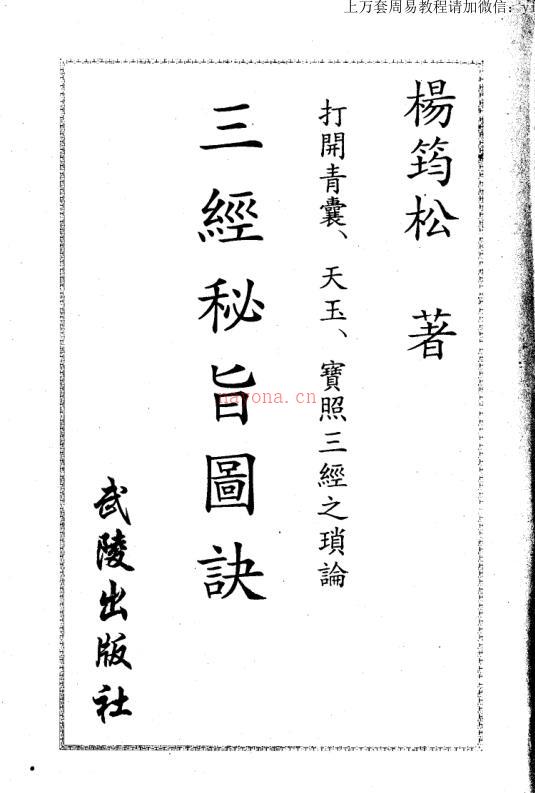 上万套周易教程请加微信：yi
楊筠松 著
打開青囊、天玉、寶照三經之瑣論
三經秘旨圖訣
武陵出版社
nayona.cn